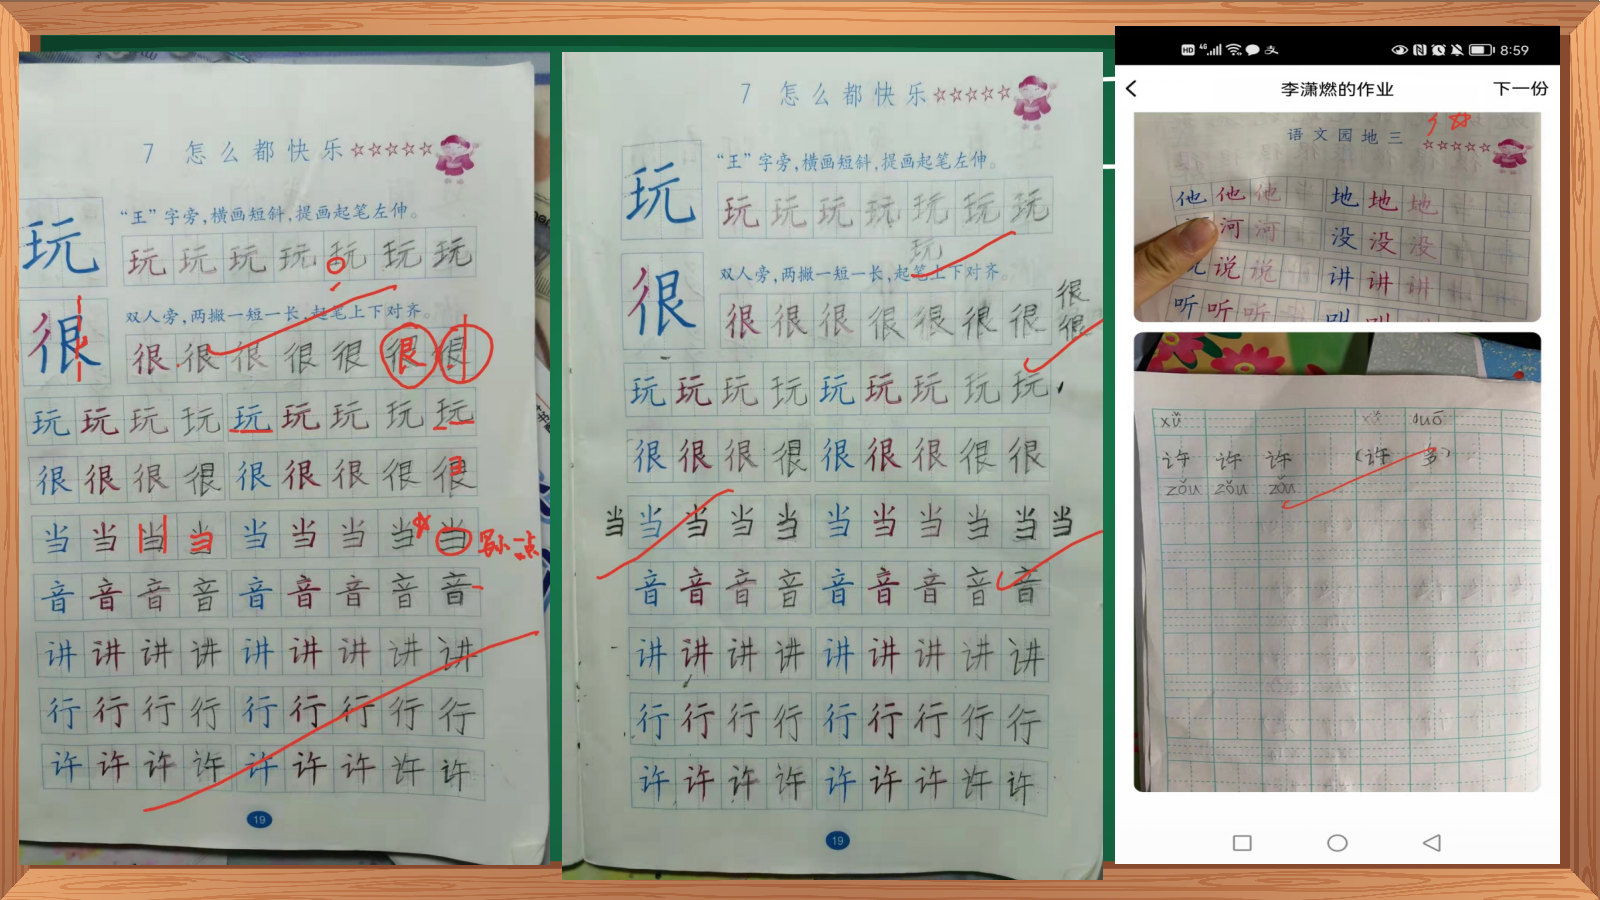 7 怎么都快乐☆☆☆☆☆
玩
“王”字旁，横画短斜，提画起笔左伸。
玩玩玩玩玩玩玩
很
双人旁，两撇一短一长，起笔上下对齐。
很很很很很很很
玩玩玩玩玩玩玩玩玩
很很很很很很很很很
当当当当当当当当当 写小一点
音音音音音音音音音
讲讲讲讲讲讲讲讲讲
行行行行行行行行行
许许许许许许许许许
19
7 怎么都快乐☆☆☆☆☆
玩
“王”字旁，横画短斜，提画起笔左伸。
玩玩玩玩玩玩玩
玩
很
双人旁，两撇一短一长，起笔上下对齐。
很很很很很很很 很
很
玩玩玩玩玩玩玩玩玩
很很很很很很很很很
当当当当当当当当当当当
音音音音音音音音音
讲讲讲讲讲讲讲讲讲
行行行行行行行行行
许许许许许许许许许
19
HD 4G 8:59
李潇燃的作业 下一份
语文园地三
☆☆☆☆☆
他他他 地地地
河河 没没没
说说 讲讲讲
听听听 叫叫叫
xǔ xǔ duō
许 许 许 （许 多）
zǒu zǒu zǒu